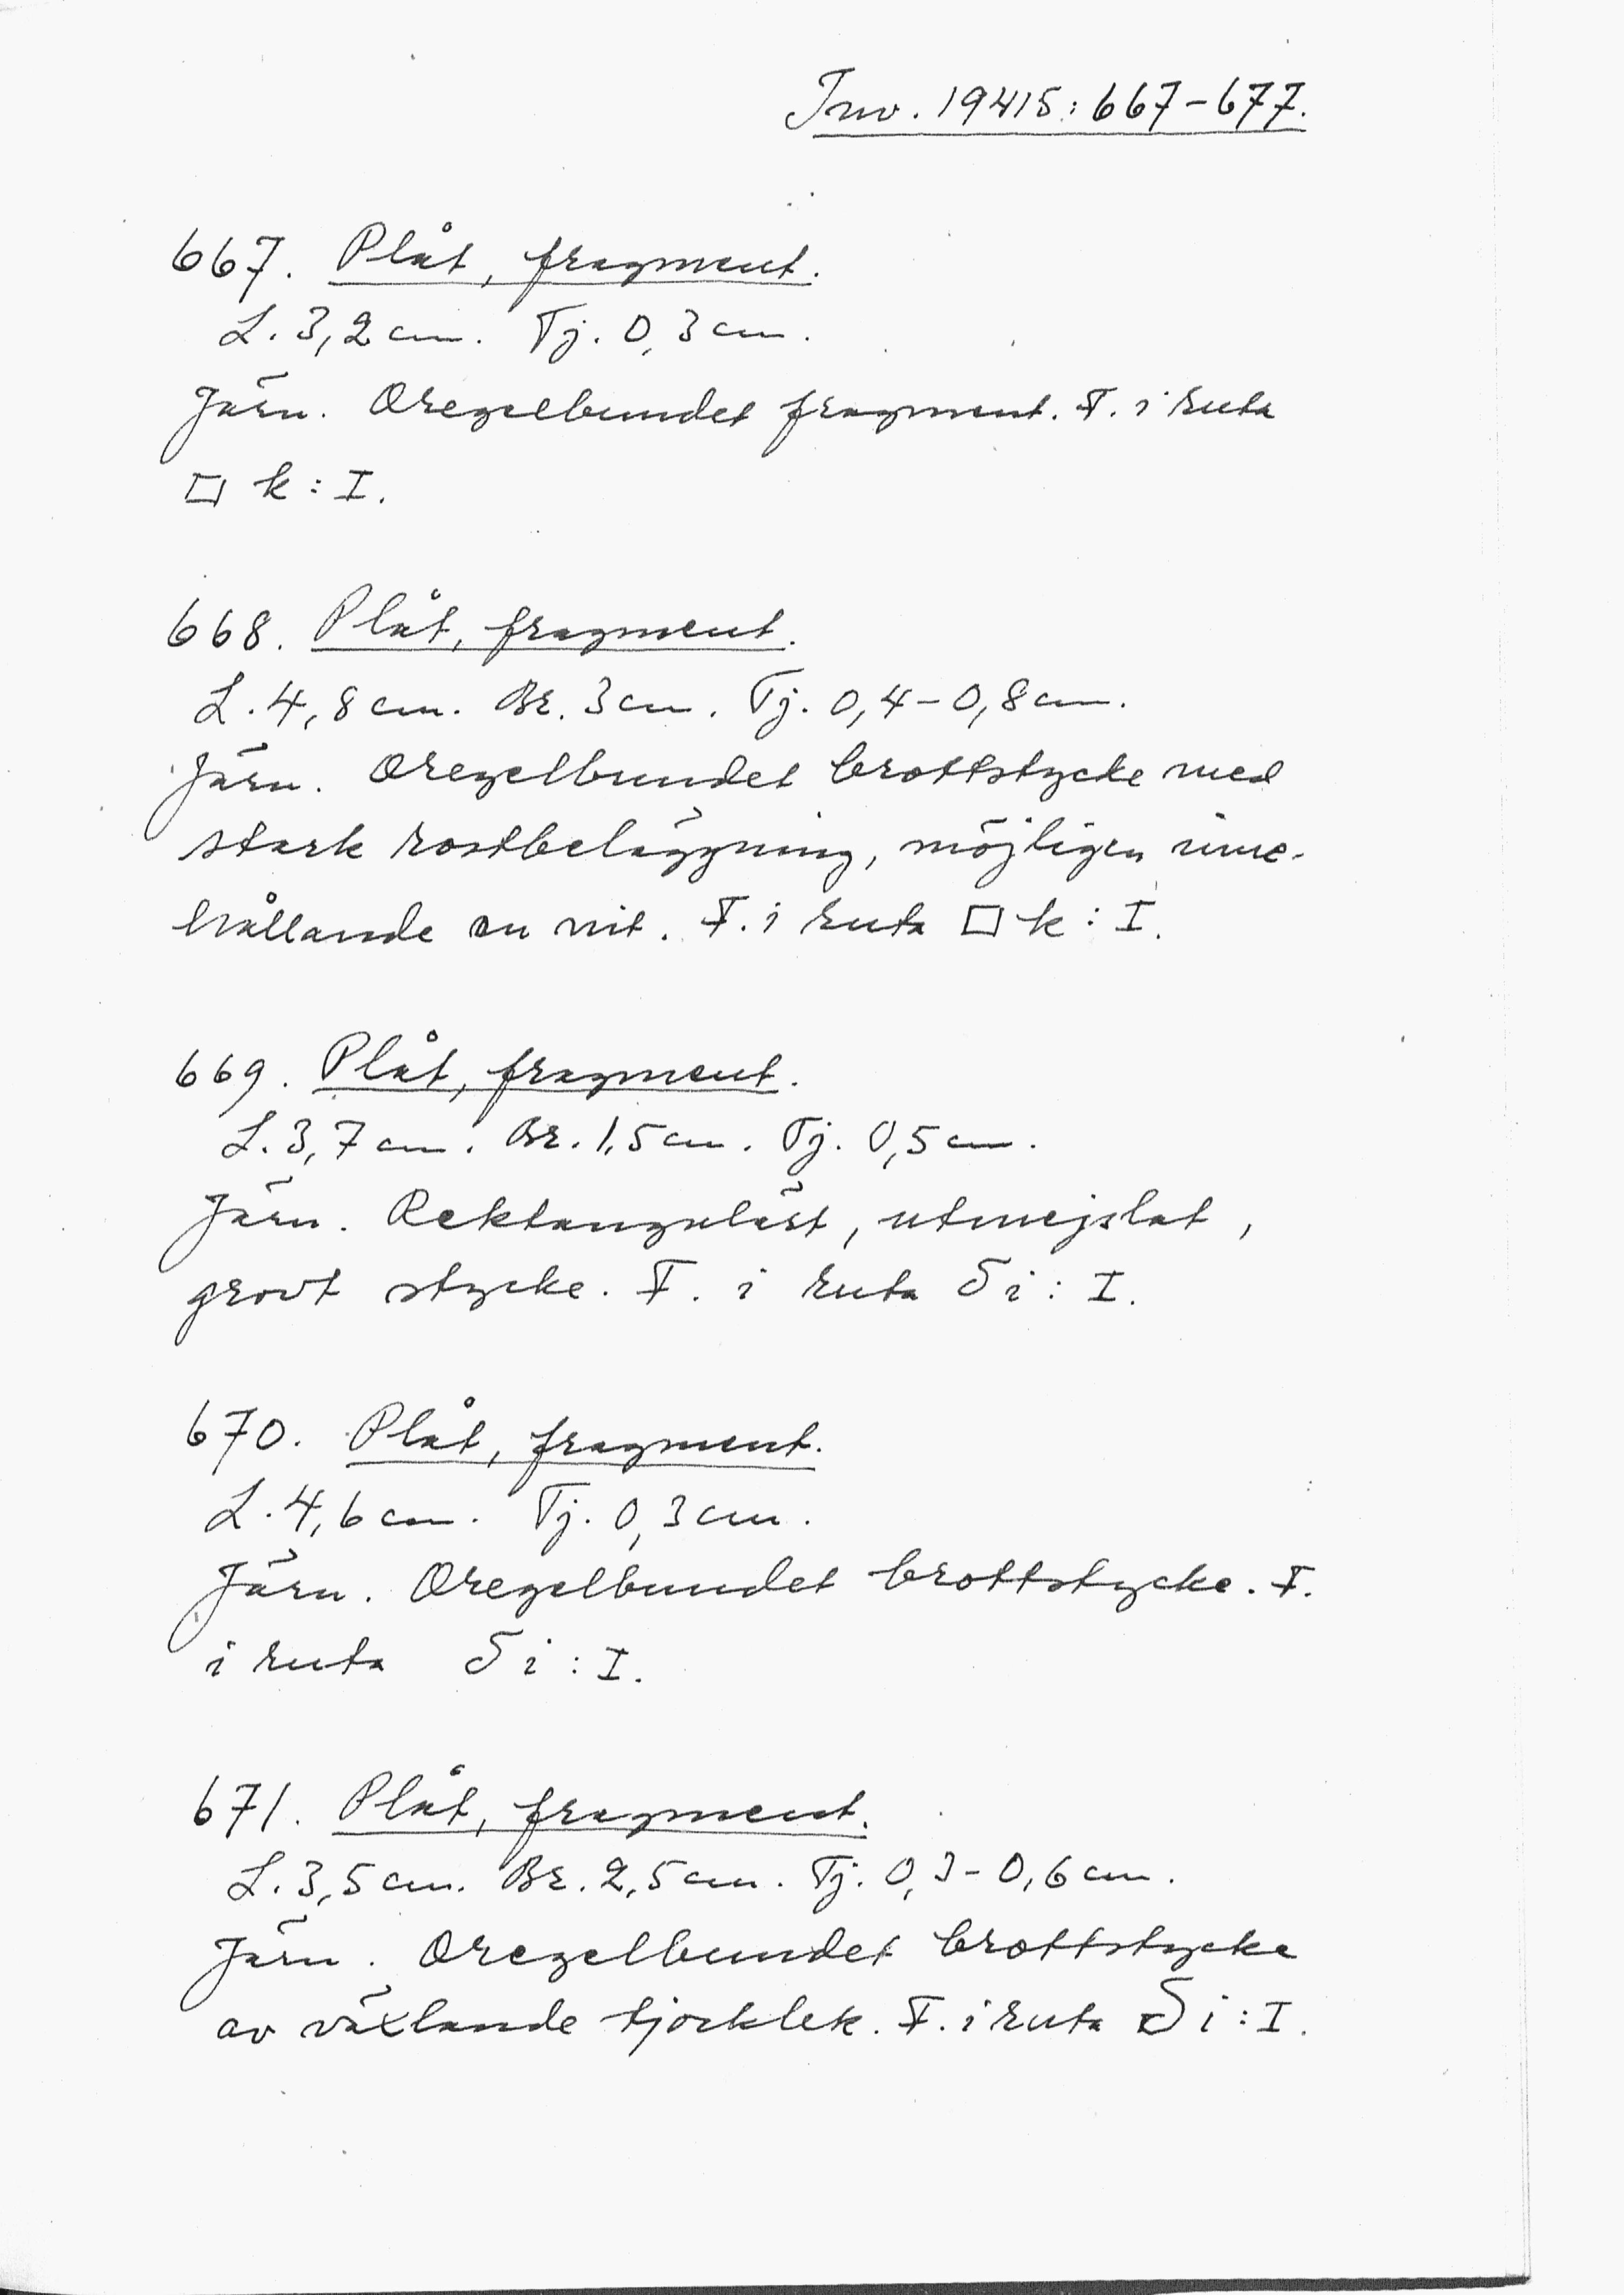 Inv. 19415: 667-677.
667. Plåt, fragment.
L. 3,2 cm. Tj. 0,3 cm.
Järn. Oregelbundet fragment. F. i ruta
□ k : I.
668. Plåt, fragment.
L. 4,8 cm. Br. 3 cm. Tj. 0,4-0,8 cm.
Järn. Oregelbundet brottstycke med
stark rostbeläggning, möjligen inne-
hållande en nit. F. i ruta □ k : I.
669. Plåt, fragment.
L. 3,7 cm. Br. 1,5 cm. Tj. 0,5 cm.
Järn. Rektangulärt, utmejslat,
grovt stycke. F. i ruta δ i : I.
670. Plåt, fragment.
L. 4,6 cm. Tj. 0,3 cm.
Järn. Oregelbundet brottstycke. F.
i ruta δ i : I.
671. Plåt, fragment.
L. 3,5 cm. Br. 2,5 cm. Tj. 0,3-0,6 cm.
Järn. Oregelbundet brottstycke
av växlande tjocklek. F. i ruta δ i : I.